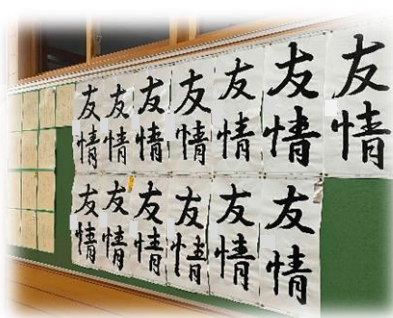 友情
友情
友情
友情
友情
友情
友情
友情
友情
友情
友情
友情
友情